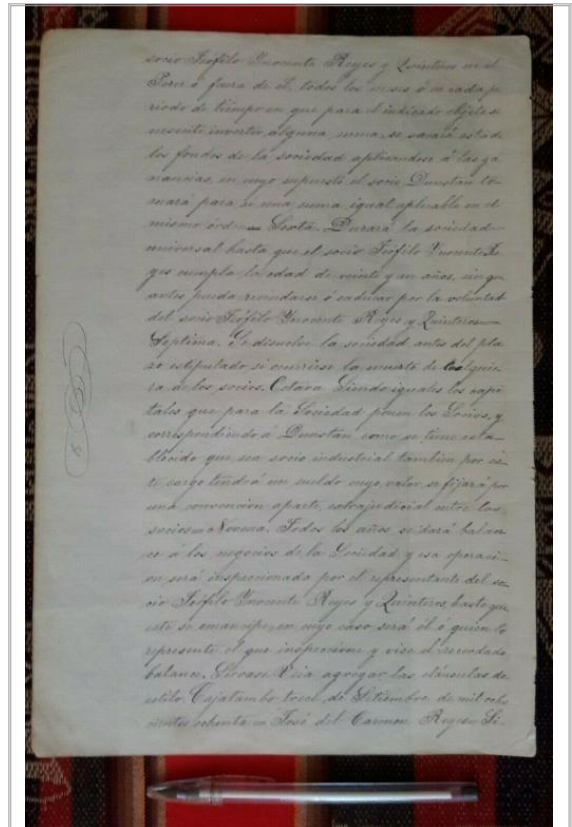 socio Teófilo Ynocente Reyes y Quinteros en el
Perú ó fuera de él, todos los meses ó en cada pe
riodo de tiempo en que para el indicado objeto se
necesite invertir alguna suma, se sacará esta de
los fondos de la sociedad aplicandose á las ga
nancias, en cuyo supuesto el socio Dunstan to
mará para si una suma igual aplicable en el
mismo órden = Sexta. Durará la sociedad
universal hasta que el socio Teófilo Ynocente Re
yes cumpla la edad de veinte y un años, sin que
antes pueda rescindirse ó caducar por la voluntad
del socio Teófilo Ynocente Reyes y Quinteros =
Septima. Se disuelve la sociedad antes del pla
zo estipulado si ocurriese la muerte de cualquie
ra de los socios. Octava Siendo iguales los capi
tales que para la Sociedad ponen los Socios, y
correspondiendo á Dunstan como se tiene esta
blecido que sea socio industrial tambien por es
te cargo tendrá un sueldo cuyo valor se fijará por
una convencion aparte extrajudicial entre los
socios = Novena. Todos los años, se dará balan
ce á los negocios de la Sociedad y esa operaci
on será inspeccionada por el representante del so
cio Teófilo Ynocente Reyes y Quinteros hasta que
este se emancipe, en cuyo caso será él ó quien lo
represente el que inspeccione y vise el recordado
balance. Sirvase Usia agregar las cláusulas de
estilo. Cajatambo trece de Setiembre de mil ocho
cientos ochenta = José del Carmen Reyes = Si-